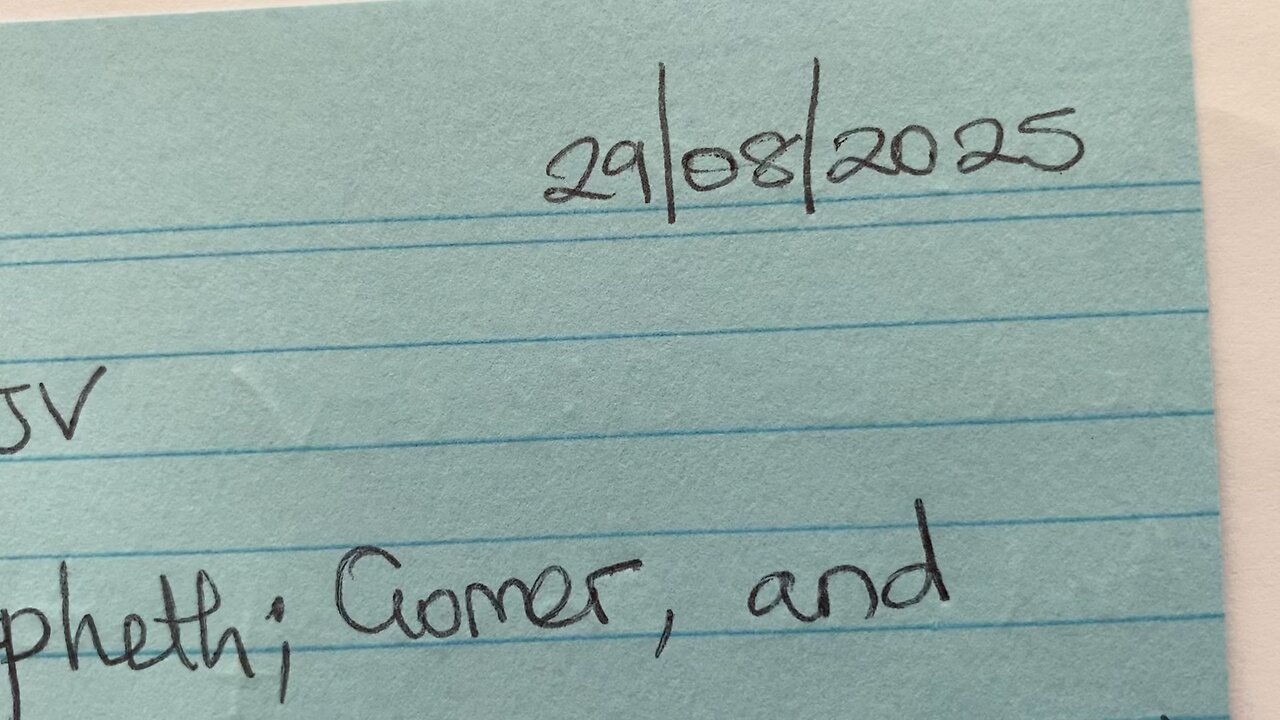 29/08/2025
JV
pheth; Gomer, and